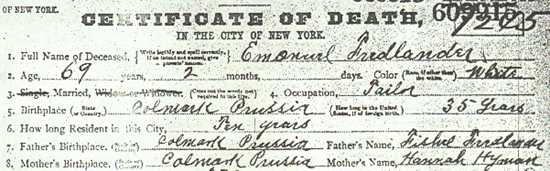 OF NEW YORK.
CERTIFICATE OF DEATH, 609915
IN THE CITY OF NEW YORK.
1. Full Name of Deceased, { Write legibly and spell correctly. If an infant not named, give parents' names. } Emanuel Fredlander
2. Age, 69 years, 2 months, days. Color { Race, if other than the white. } White
3. Single, Married, Widow or Widower. { Cross out the words not required in this line. } 4. Occupation, Tailor
5. Birthplace { State or Country. } Colmark Prussia { How long in the United States, if of foreign birth. } 35 Years
6. How long Resident in this City, Ten years
7. Father's Birthplace. Colmark Prussia Father's Name, Fishel Fredlander
8. Mother's Birthplace. Colmark Prussia Mother's Name, Hannah Hyman